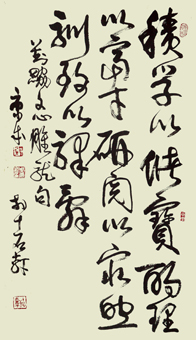 積學以儲寶酌理
以富才研閱以窮照
馴致以繹辭
勰文心雕龍句
十石軒